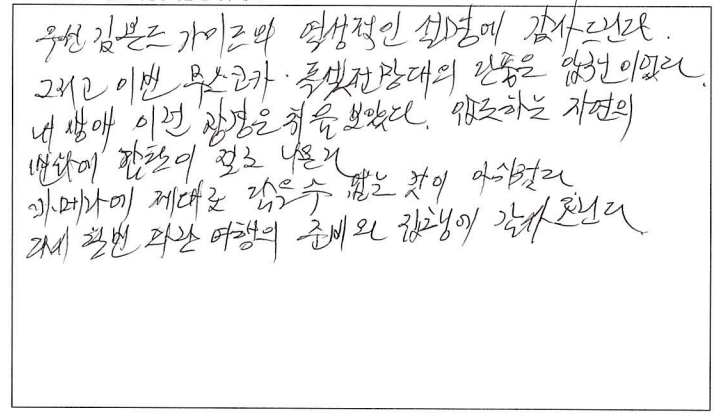 우선 김본드 가이드의 열성적인 설명에 감사드린다.
그리고 이번 무스코카·폭셋전망대의 단풍은 압권이었다.
내 생애 이런 광경은 처음 보았다. 압도하는 자연의
변화에 감탄이 절로 나온다
카메라에 제대로 담을 수 없는 것이 아쉬웠다
다시 한번 파란 여행의 준비와 집행에 감사드린다.